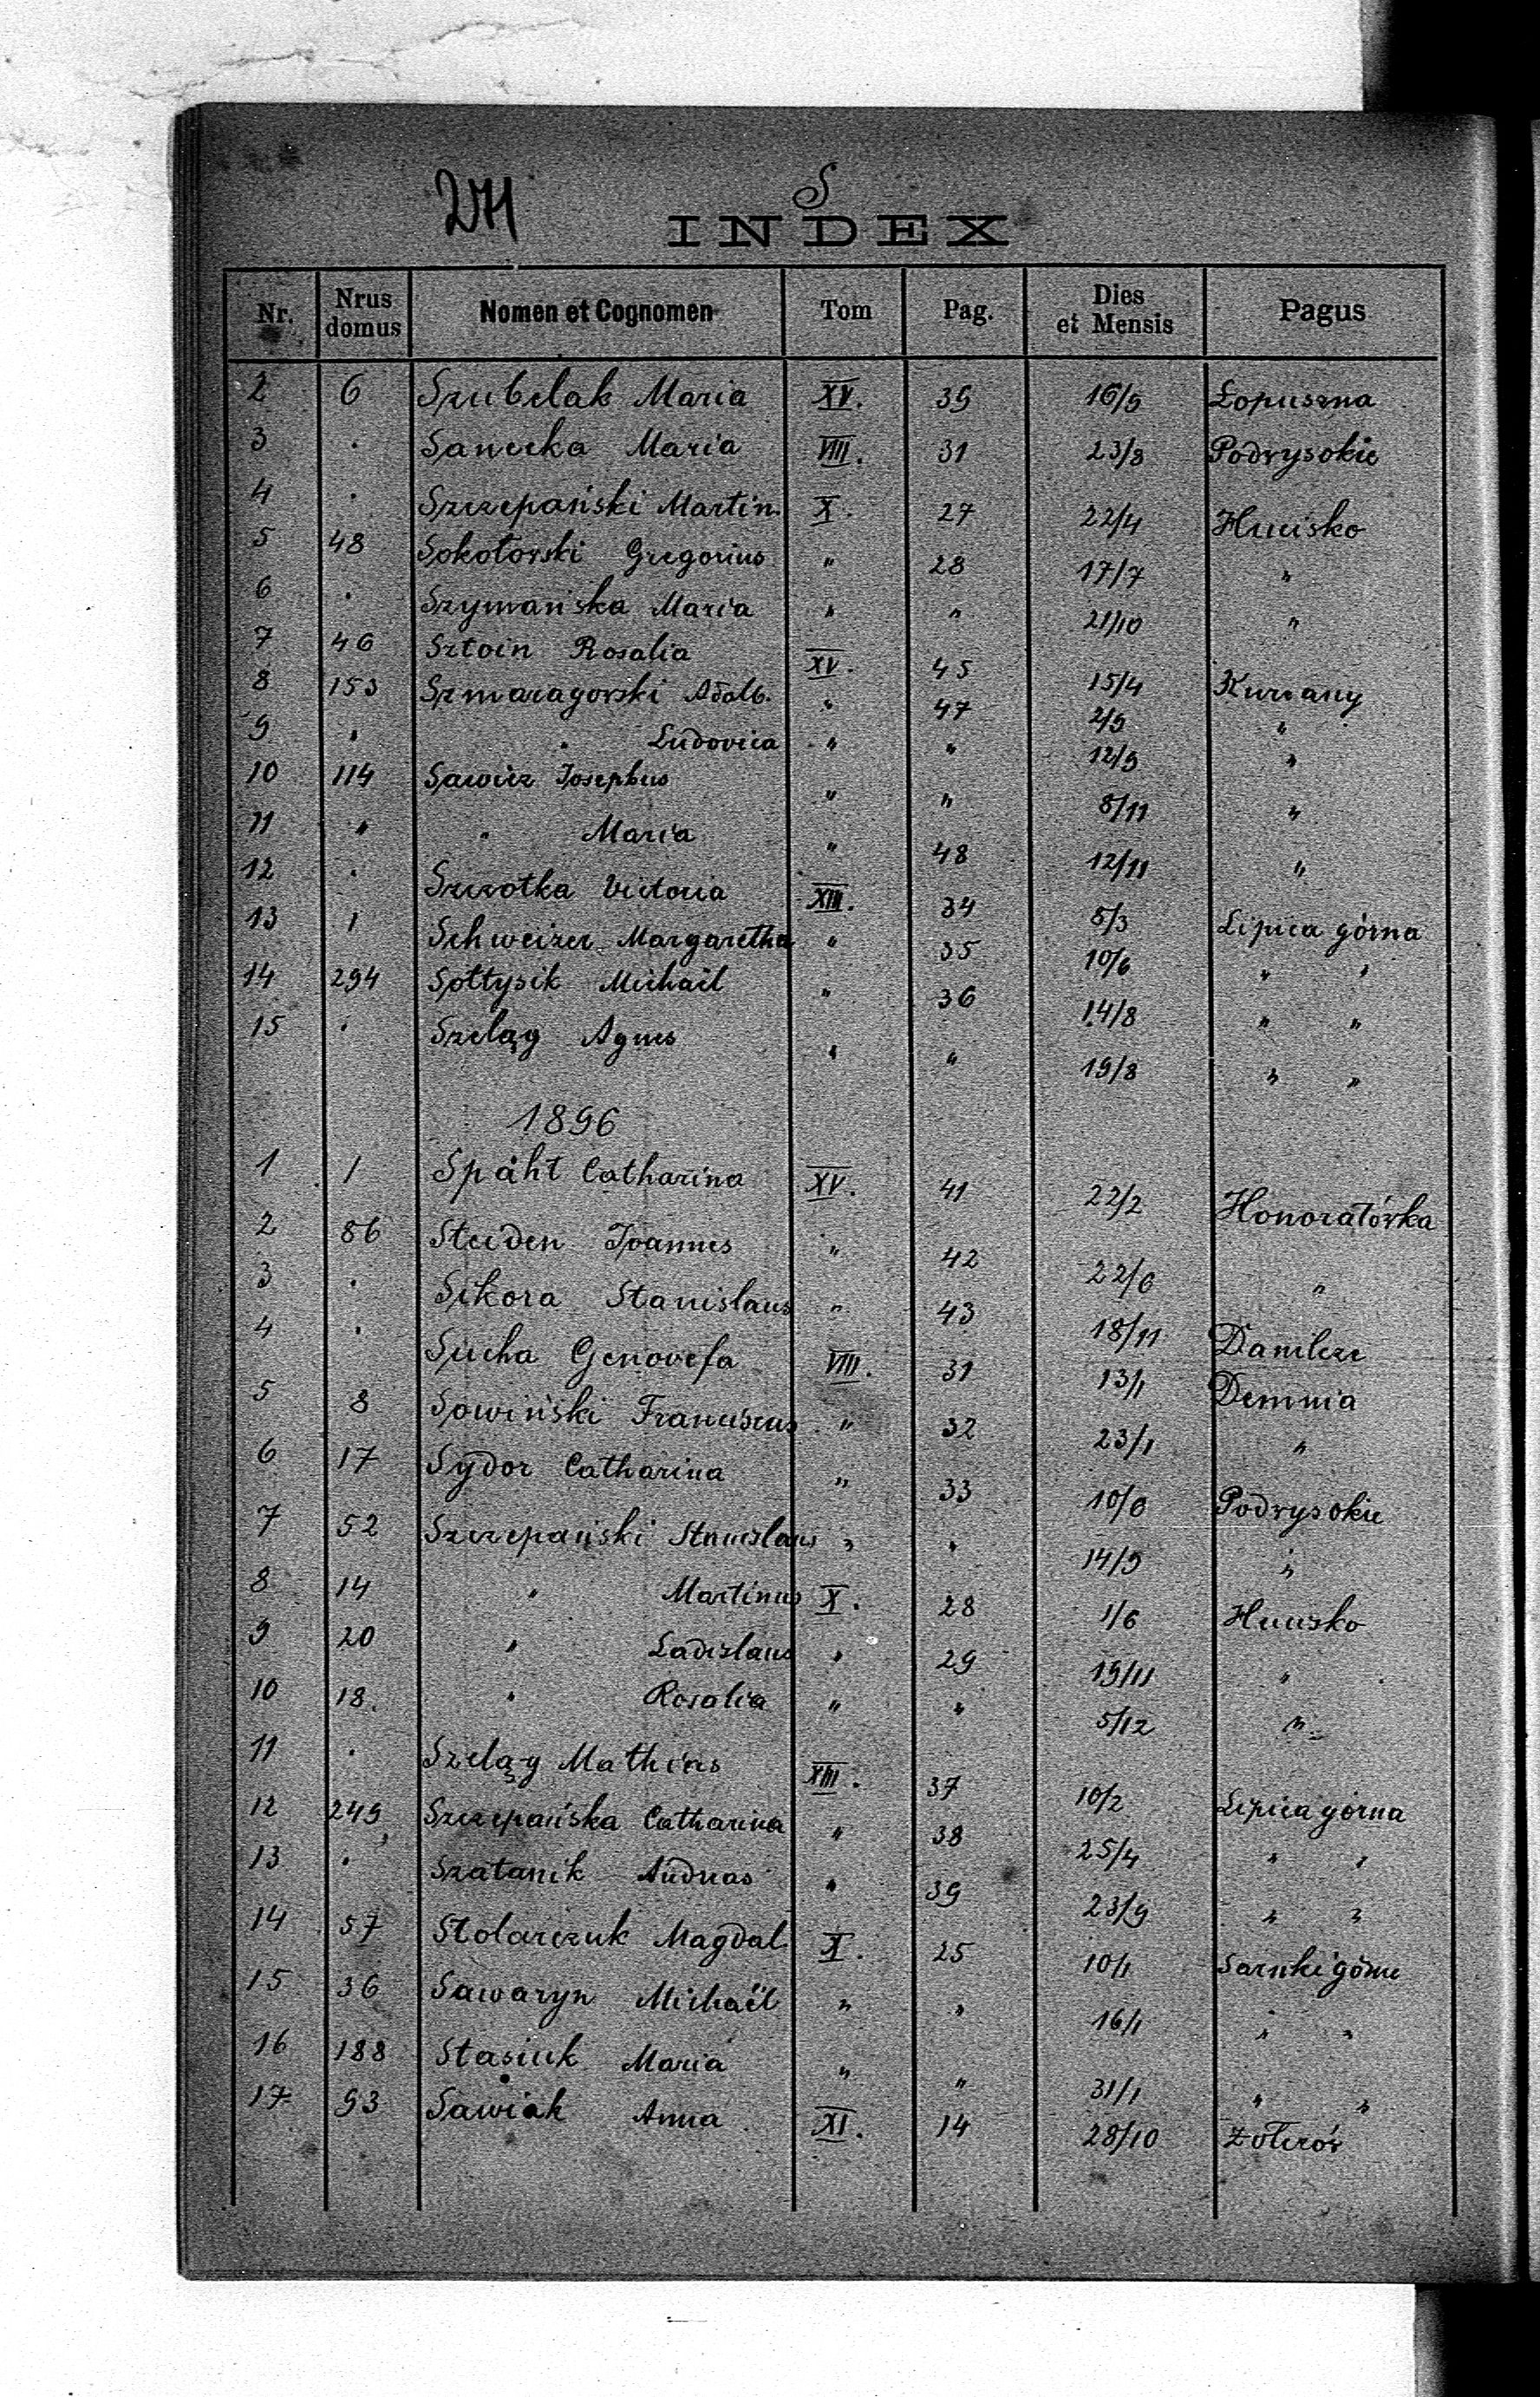 271
S
INDEX
Nr. Nrus domus Nomen et Cognomen Tom Pag. Dies et Mensis Pagus
2 6 Szubelak Maria XV. 39 16/9 Łopuszna
3 . Sanecka Maria VIII. 31 23/8 Podwysokie
4 . Szczepański Martin. X. 27 22/4 Hucisko
5 48 Sokołowski Gregorius " 28 17/7 "
6 . Szymańska Maria " " 21/10 "
7 46 Sztoin Rosalia XV. 45 15/4 Kurzany
8 153 Szmaragowski Adalb. " 47 2/9 "
9 " " Ludovica " " 12/9 "
10 114 Sawicz Josephus " " 8/11 "
11 " " Maria " 48 12/11 "
12 . Szczotka Victoria XIII. 34 5/3 Lipica górna
13 1 Schweizer Margaretha " 35 10/6 " "
14 294 Sołtysik Michaël " 36 14/8 " "
15 . Szeląg Agnes " " 19/8 " "
1896
1 1 Späht Catharina XV. 41 22/2 Honoratówka
2 86 Steiden Joannes " 42 22/6 "
3 . Sikora Stanislaus " 43 18/11 Danilcze
4 . Sucha Genovefa VIII. 31 13/1 Demnia
5 8 Sowiński Franciscus " 32 23/1 "
6 17 Sydor Catharina " 33 10/6 Podwysokie
7 52 Szczepański Stanislaus " " 14/9 "
8 14 " Martinus X. 28 1/6 Hucisko
9 20 " Ladislaus " 29 19/11 "
10 18. " Rosalia " " 5/12 "
11 . Szeląg Mathias XIII. 37 10/2 Lipica górna
12 249 Szczepańska Catharina " 38 25/4 " "
13 . Szatanik Andreas " 39 23/9 " "
14 57 Stolarczuk Magdal. X. 25 10/1 Sarnki górne
15 36 Sawaryn Michaël " " 16/1 " "
16 188 Stasiuk Maria " " 31/1 " "
17 93 Sawiak Anna XI. 14 28/10 Żołczów